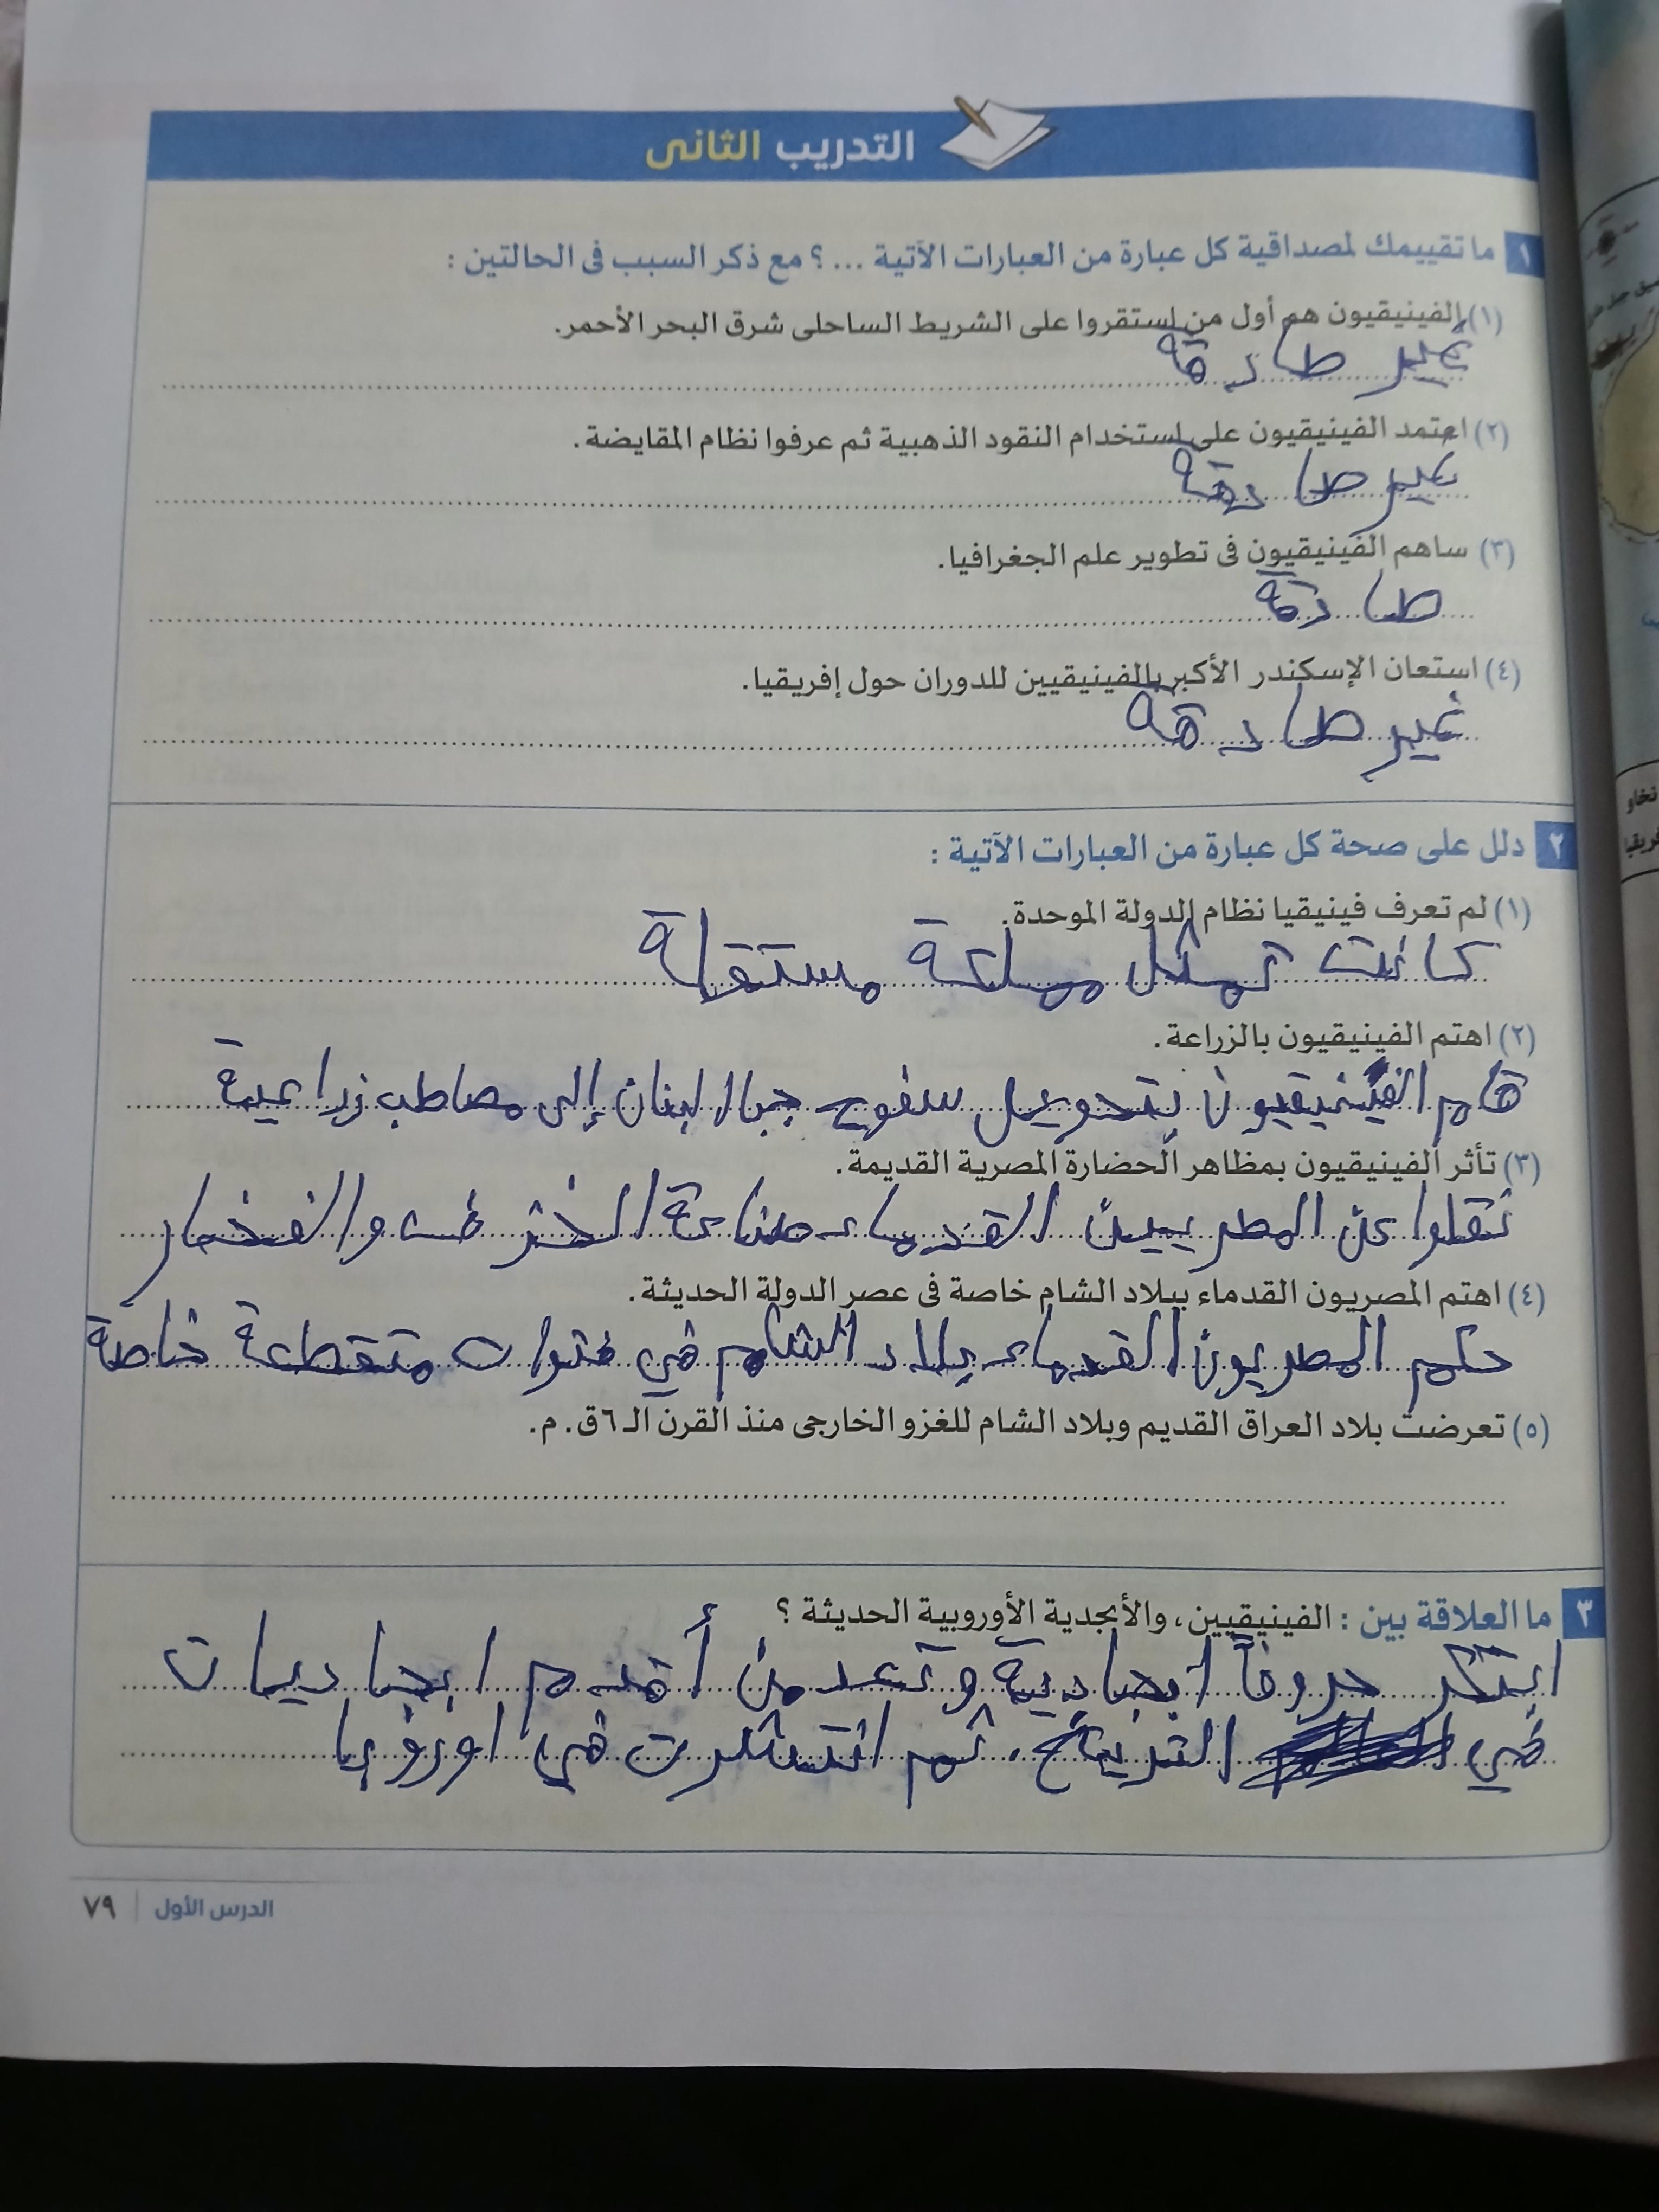 التدريب الثانى
١ ما تقييمك لمصداقية كل عبارة من العبارات الآتية ... ؟ مع ذكر السبب فى الحالتين :
(١) الفينيقيون هم أول من استقروا على الشريط الساحلى شرق البحر الأحمر.
غير صادقة
(٢) اعتمد الفينيقيون على استخدام النقود الذهبية ثم عرفوا نظام المقايضة.
غير صادقة
(٣) ساهم الفينيقيون فى تطوير علم الجغرافيا.
صادقة
(٤) استعان الإسكندر الأكبر بالفينيقيين للدوران حول إفريقيا.
غير صادقة
٢ دلل على صحة كل عبارة من العبارات الآتية :
(١) لم تعرف فينيقيا نظام الدولة الموحدة.
كانت تمثل مملكة مستقلة
(٢) اهتم الفينيقيون بالزراعة.
قام الفينيقيون بتحويل سفوح جبال لبنان إلى مصاطب زراعية
(٣) تأثر الفينيقيون بمظاهر الحضارة المصرية القديمة.
نقلوا عن المصريين القدماء صناعة الخزف والفخار
(٤) اهتم المصريون القدماء ببلاد الشام خاصة فى عصر الدولة الحديثة.
حكم المصريون القدماء بلاد الشام في فترات متقطعة خاصة
(٥) تعرضت بلاد العراق القديم وبلاد الشام للغزو الخارجى منذ القرن الـ ٦ ق. م.
٣ ما العلاقة بين : الفينيقيين، والأبجدية الأوروبية الحديثة ؟
ابتكر حروفاً ابجادية وتعد من أقدم ابجاديات
في التريخ. ثم انتشرت في اوروبا
الدرس الأول | ٧٩
نخاو